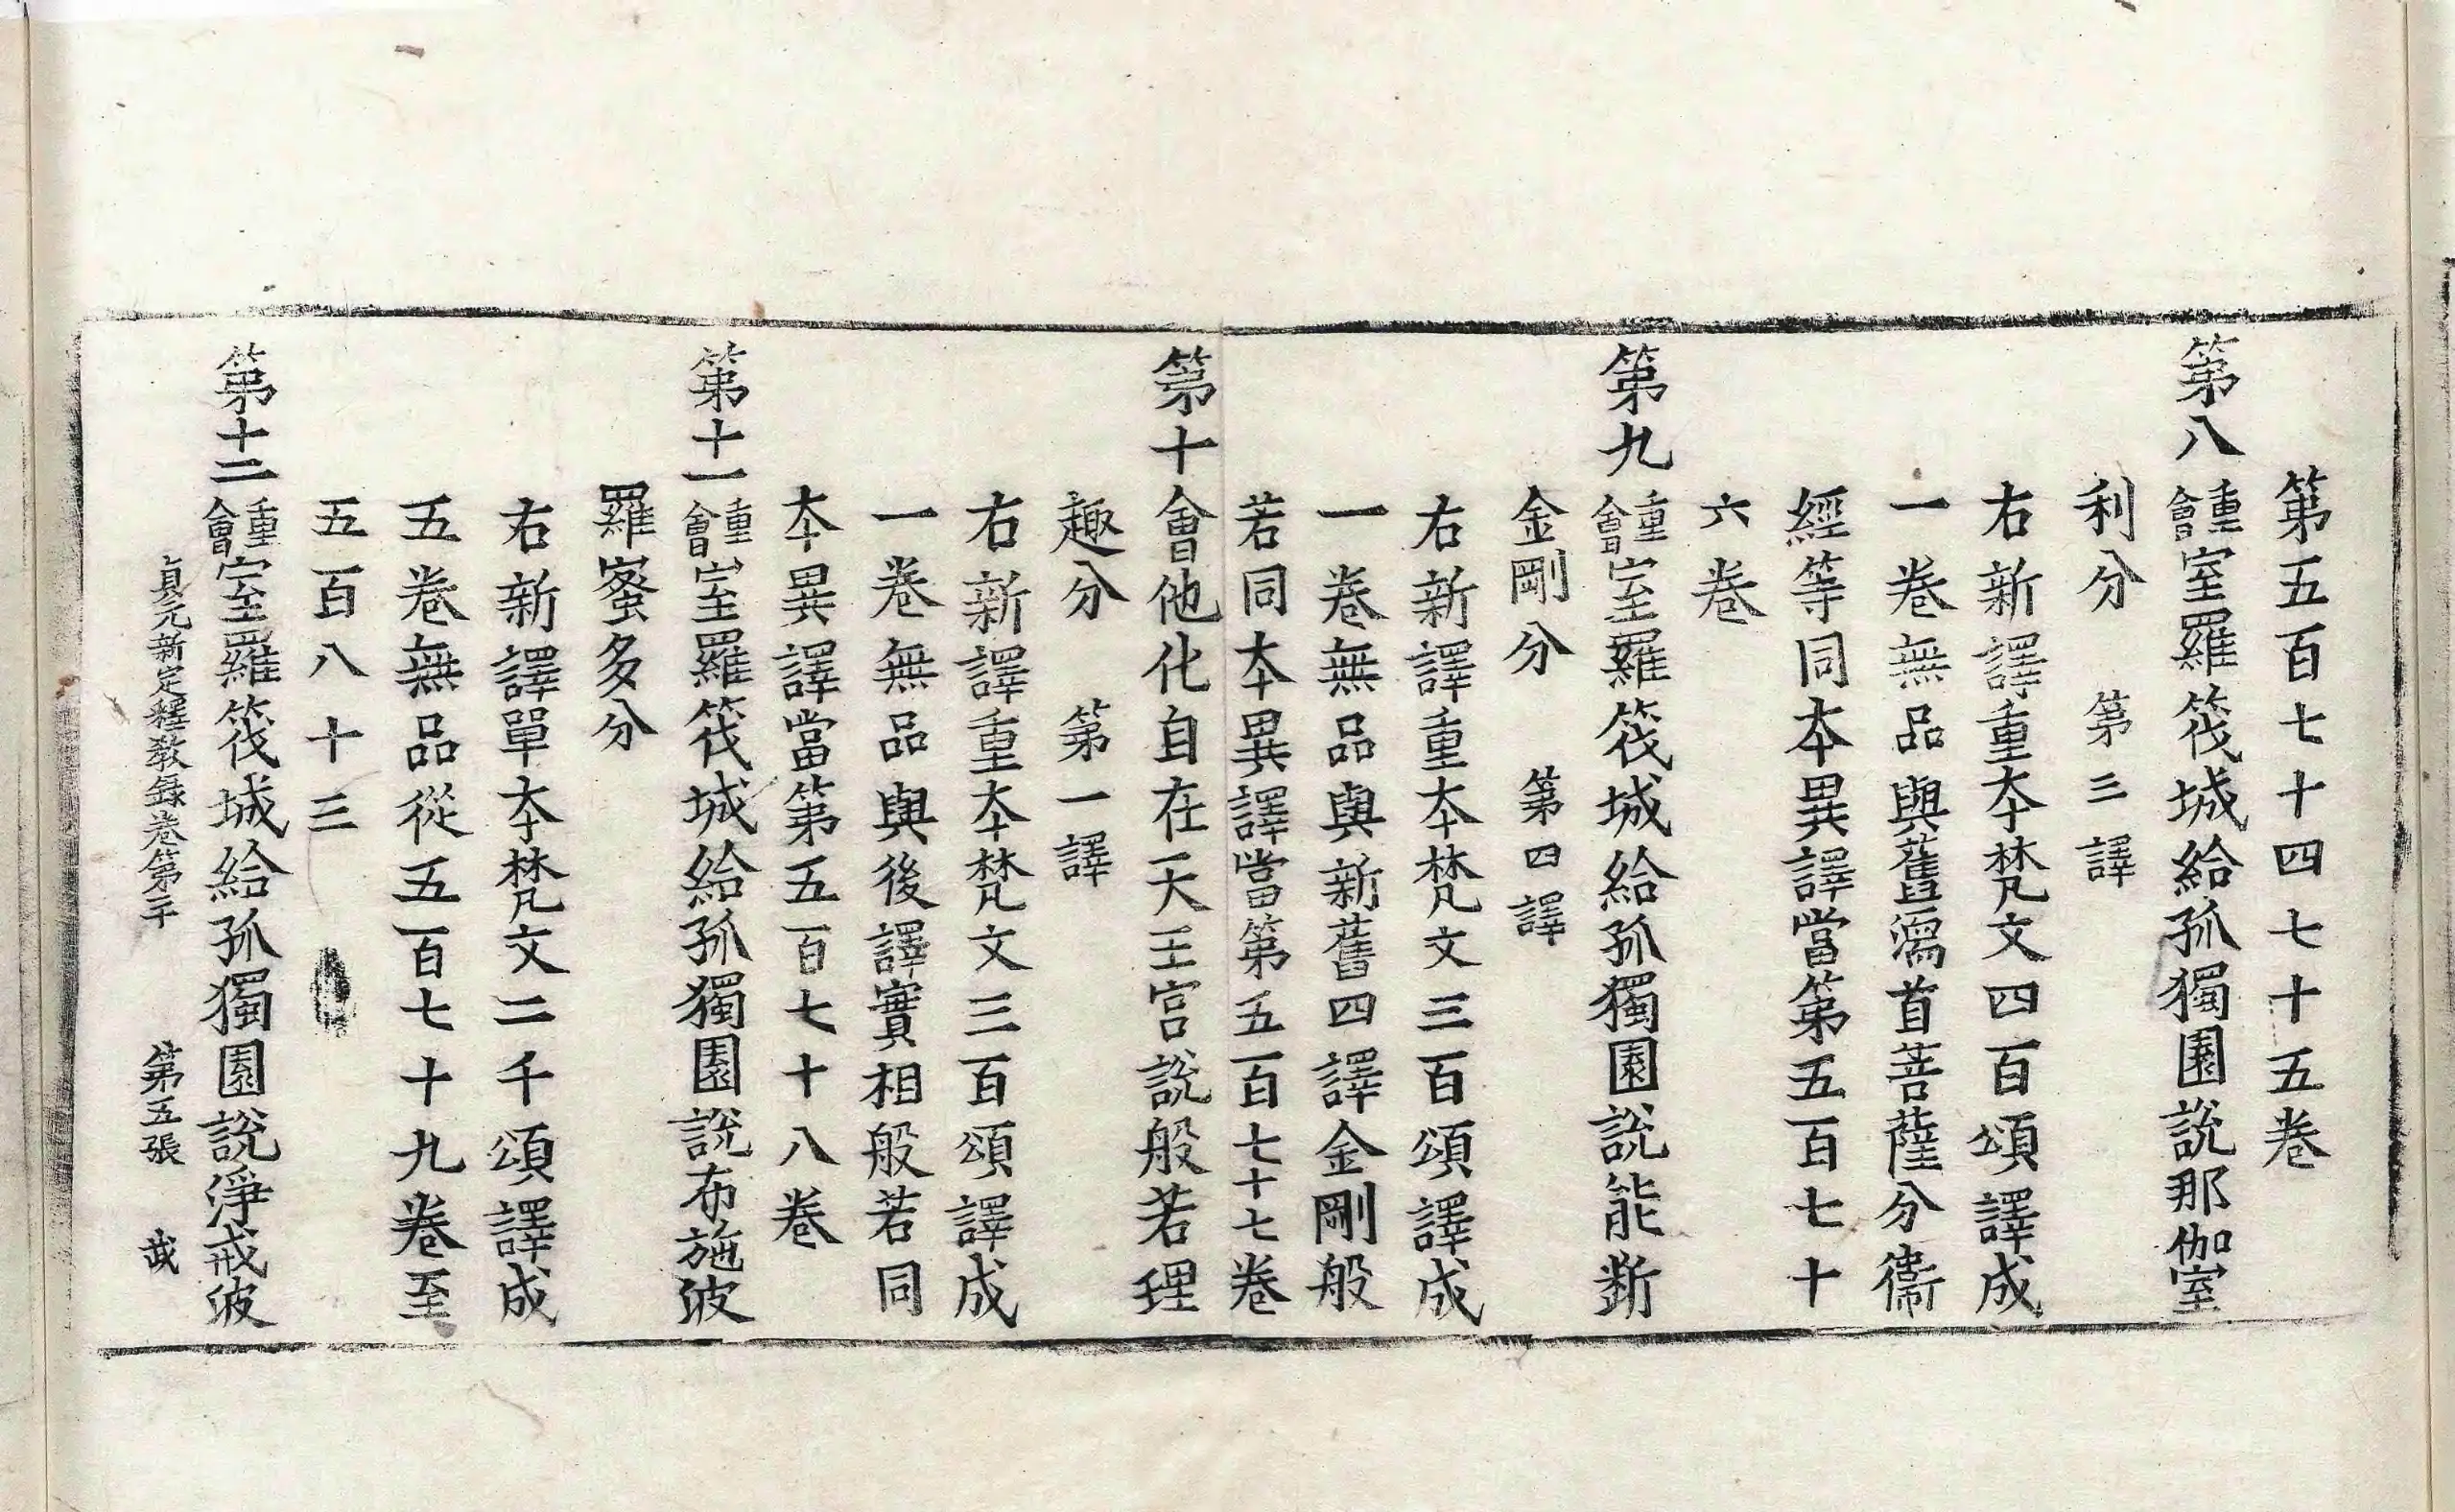 第五百七十四七十五卷
第八重會室羅筏城給孤獨園說那伽室
利分　第三譯
右新譯重本梵文四百頌譯成
一卷無品與舊濡首菩薩分衞
經等同本異譯當第五百七十
六卷
第九重會室羅筏城給孤獨園說能斷
金剛分　第四譯
右新譯重本梵文三百頌譯成
一卷無品與新舊四譯金剛般
若同本異譯當第五百七十七卷
第十會他化自在天王宮說般若理
趣分　第一譯
右新譯重本梵文三百頌譯成
一卷無品與後譯實相般若同
本異譯當第五百七十八卷
第十一重會室羅筏城給孤獨園說布施波
羅蜜多分
右新譯單本梵文二千頌譯成
五卷無品從五百七十九卷至
五百八十三
第十二重會室羅筏城給孤獨園說淨戒波
貞元新定釋教錄卷第二十　第五張